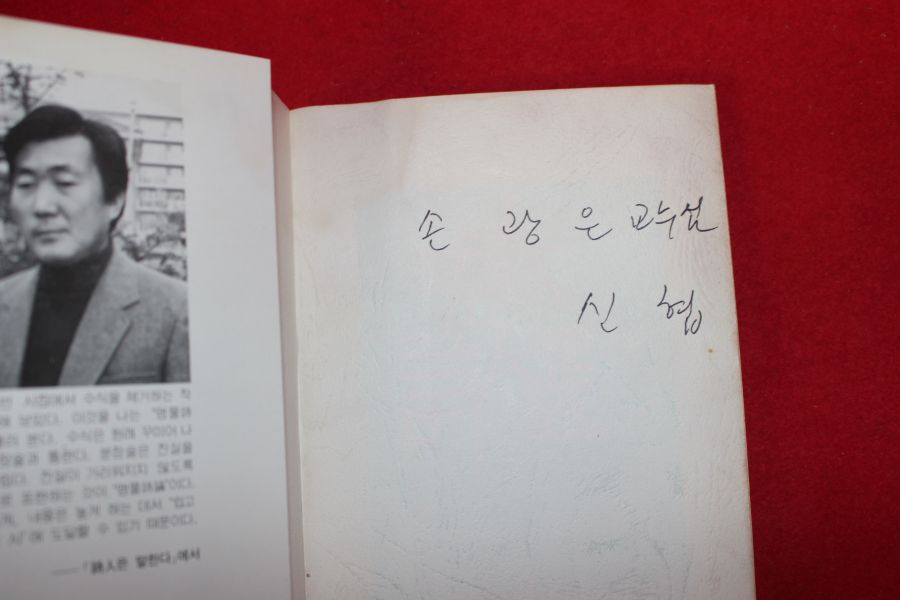 손 광 은 교수님
신 협
시집에서 수식을 제거하는 작
이것을 나는 "명물詩
본다. 수식은 원래 꾸미어 나
통한다. 분장술은 진실을
진실이 가리워지지 않도록
표현하는 것이 "명물詩論"이다.
내용은 높게 하는 데서 "입고
시"에 도달할 수 있기 때문이다.
──「詩人은 말한다」에서